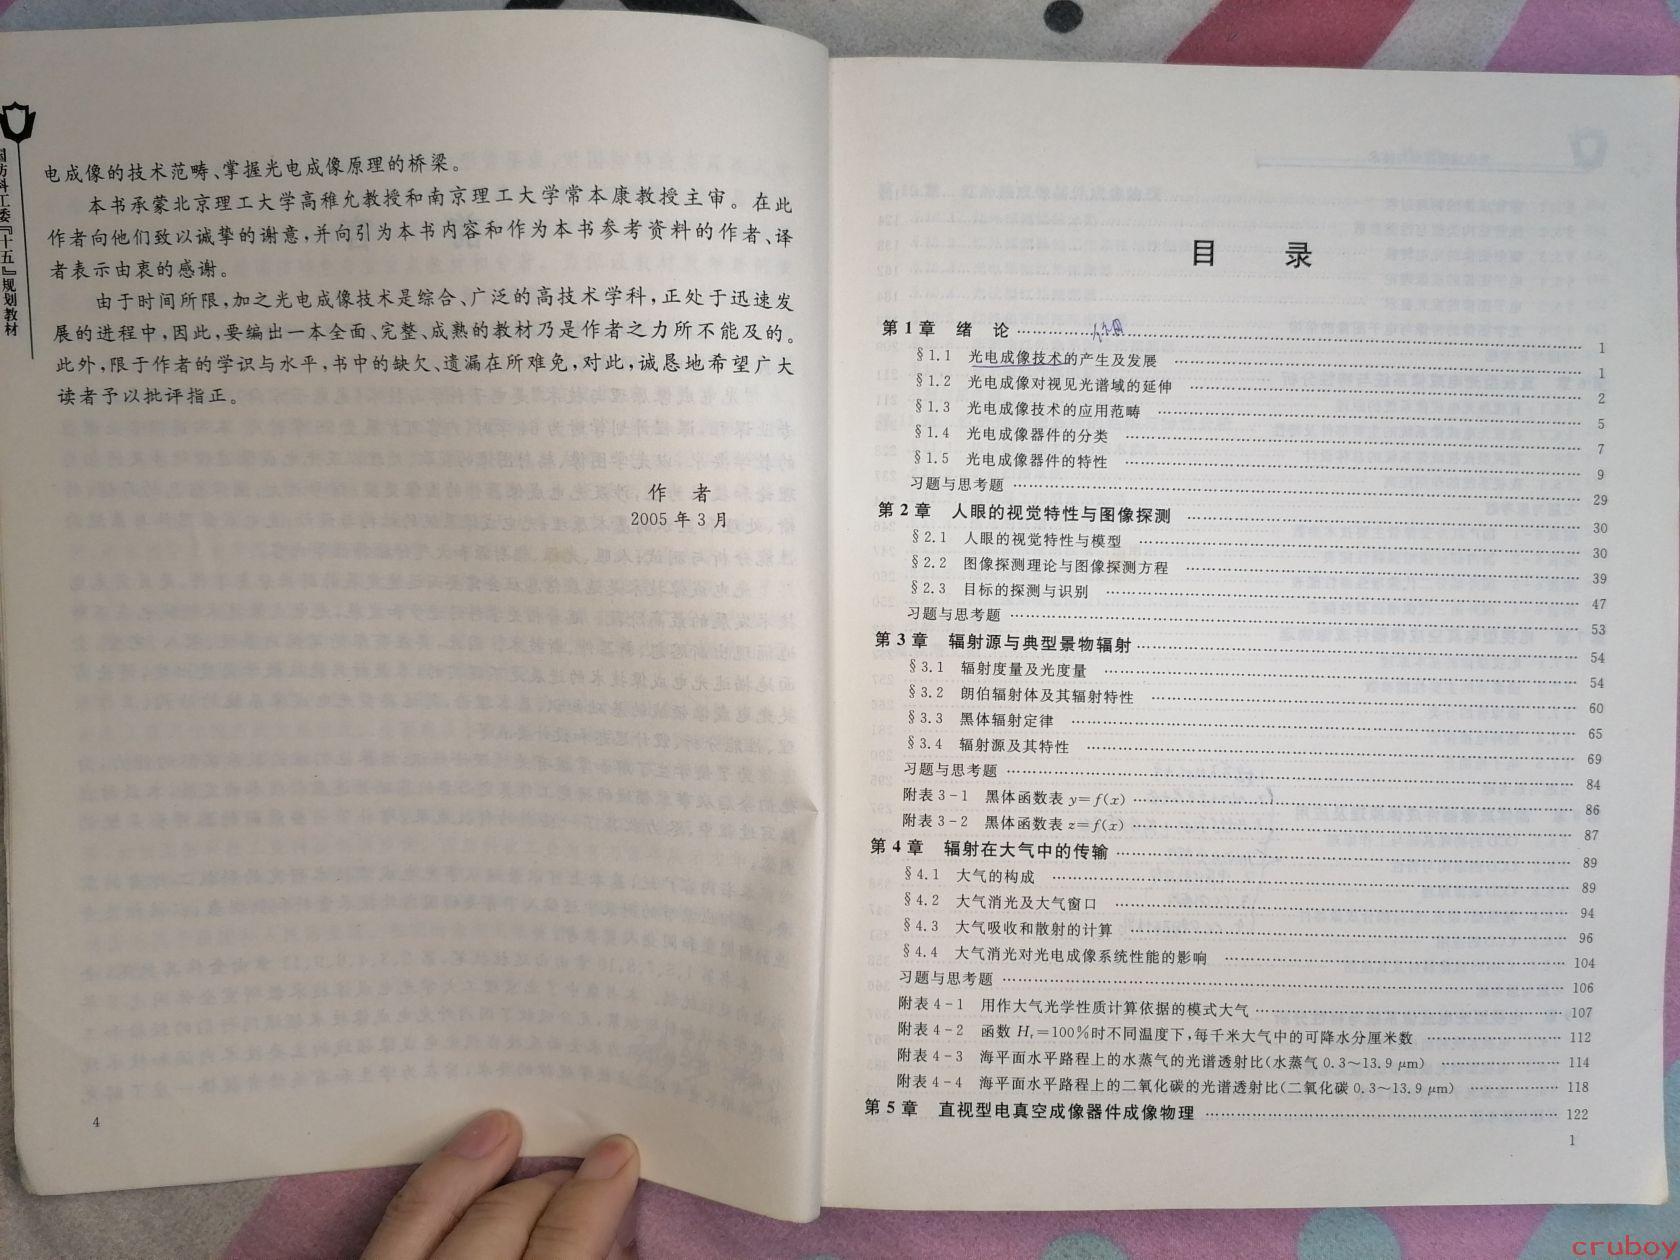 国防科工委『十五』规划教材
电成像的技术范畴、掌握光电成像原理的桥梁。
本书承蒙北京理工大学高稚允教授和南京理工大学常本康教授主审。在此
作者向他们致以诚挚的谢意,并向引为本书内容和作为本书参考资料的作者、译
者表示由衷的感谢。
由于时间所限,加之光电成像技术是综合、广泛的高技术学科,正处于迅速发
展的进程中,因此,要编出一本全面、完整、成熟的教材乃是作者之力所不能及的。
此外,限于作者的学识与水平,书中的缺欠、遗漏在所难免,对此,诚恳地希望广大
读者予以批评指正。
作 者
2005 年 3 月
4
目 录
第 1 章 绪 论 …… 1
§1.1 光电成像技术的产生及发展 …… 1
§1.2 光电成像对视见光谱域的延伸 …… 2
§1.3 光电成像技术的应用范畴 …… 5
§1.4 光电成像器件的分类 …… 7
§1.5 光电成像器件的特性 …… 9
习题与思考题 …… 29
第 2 章 人眼的视觉特性与图像探测 …… 30
§2.1 人眼的视觉特性与模型 …… 30
§2.2 图像探测理论与图像探测方程 …… 39
§2.3 目标的探测与识别 …… 47
习题与思考题 …… 53
第 3 章 辐射源与典型景物辐射 …… 54
§3.1 辐射度量及光度量 …… 54
§3.2 朗伯辐射体及其辐射特性 …… 60
§3.3 黑体辐射定律 …… 65
§3.4 辐射源及其特性 …… 69
习题与思考题 …… 84
附表 3-1 黑体函数表 y=f(x) …… 86
附表 3-2 黑体函数表 z=f(x) …… 87
第 4 章 辐射在大气中的传输 …… 89
§4.1 大气的构成 …… 89
§4.2 大气消光及大气窗口 …… 94
§4.3 大气吸收和散射的计算 …… 96
§4.4 大气消光对光电成像系统性能的影响 …… 104
习题与思考题 …… 106
附表 4-1 用作大气光学性质计算依据的模式大气 …… 107
附表 4-2 函数 Hr=100%时不同温度下,每千米大气中的可降水分厘米数 112
附表 4-3 海平面水平路程上的水蒸气的光谱透射比(水蒸气 0.3~13.9 μm) …… 114
附表 4-4 海平面水平路程上的二氧化碳的光谱透射比(二氧化碳 0.3~13.9 μm) …… 118
第 5 章 直视型电真空成像器件成像物理 …… 122
1
cruboy